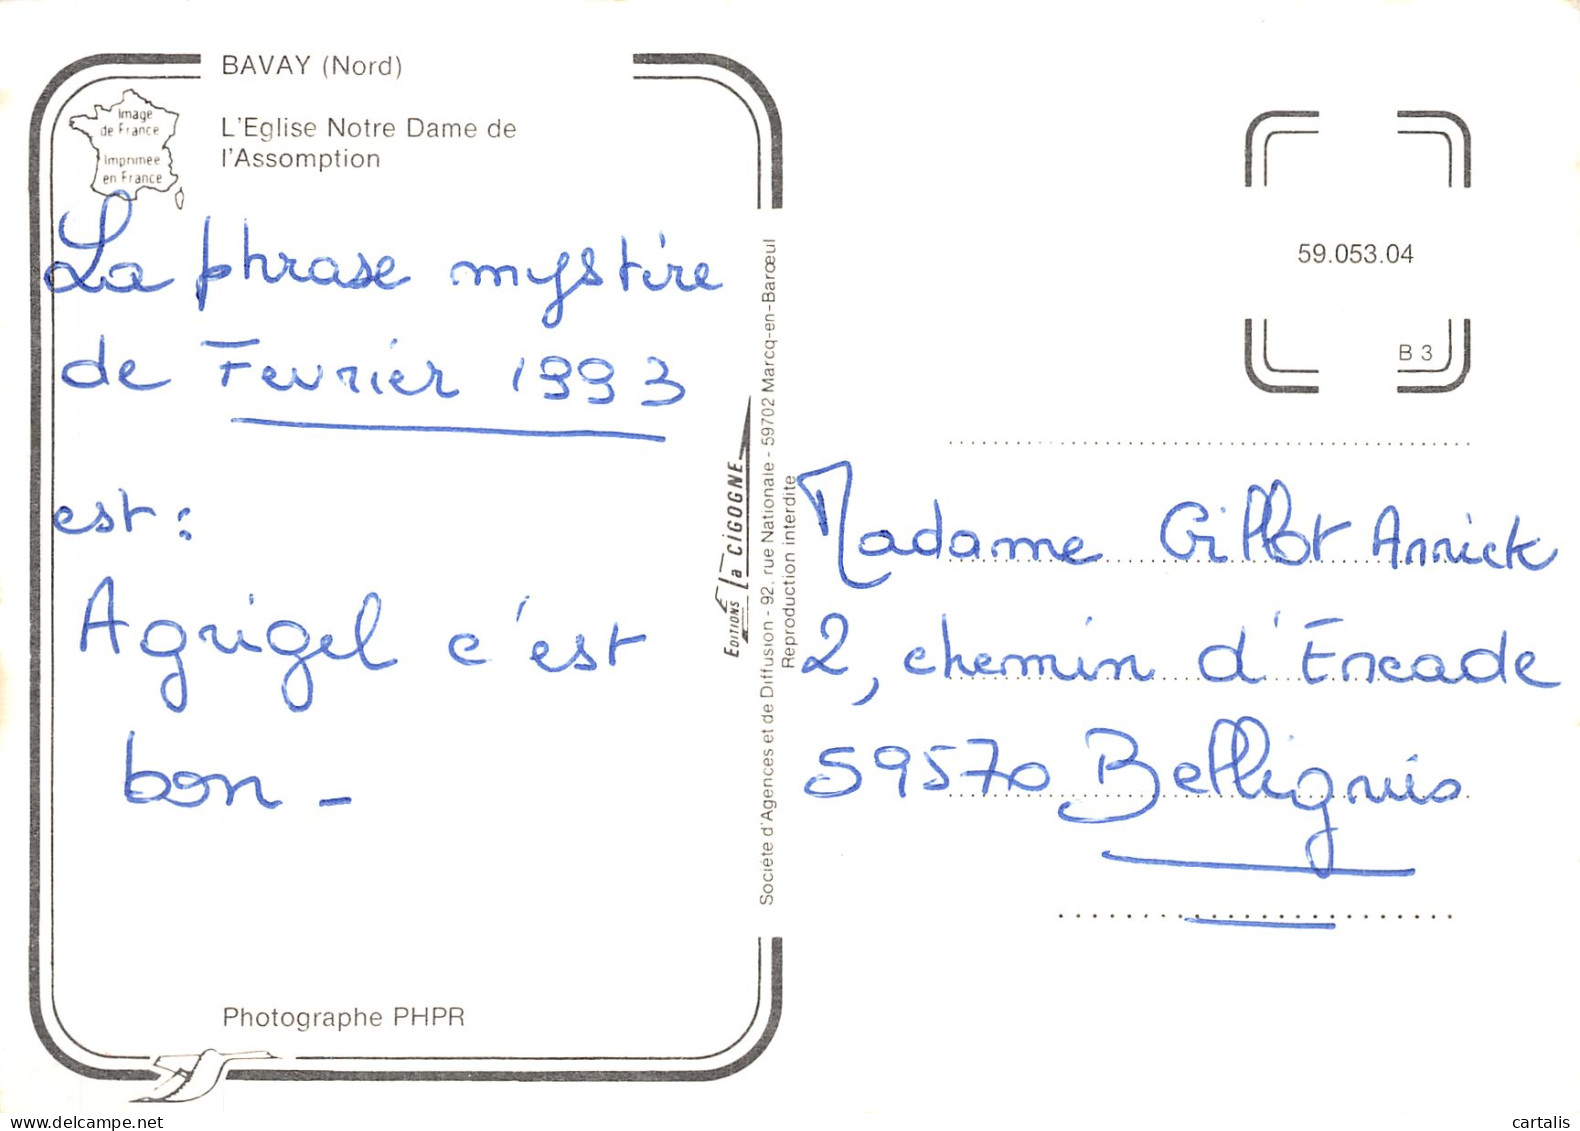 BAVAY (Nord)
Image
de France
Imprimée
en France
L'Eglise Notre Dame de
l'Assomption
La phrase mystire
de Fevrier 1993
est :
Agrigel c'est
bon -
Photographe PHPR
EDITIONS La CIGOGNE
Société d'Agences et de Diffusion - 92, rue Nationale - 59702 Marcq-en-Barœul
Reproduction interdite
59.053.04
B 3
Madame Gillot Annick
2, chemin d'Encade
59570 Bellignies
cartalis